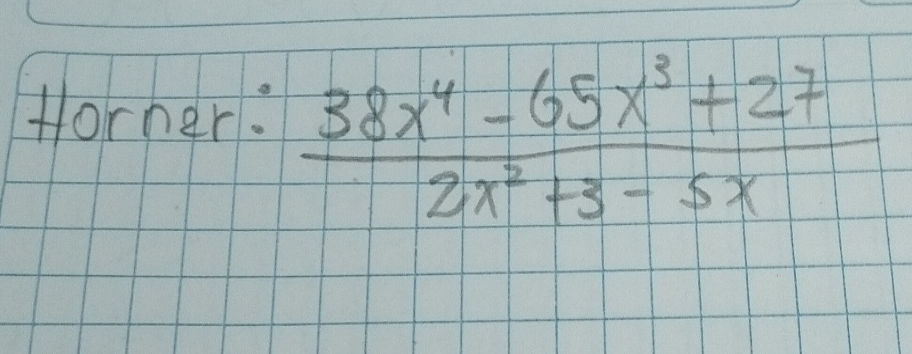 Horner: 38x⁴ - 65x³ + 27
2x² + 3 - 5x